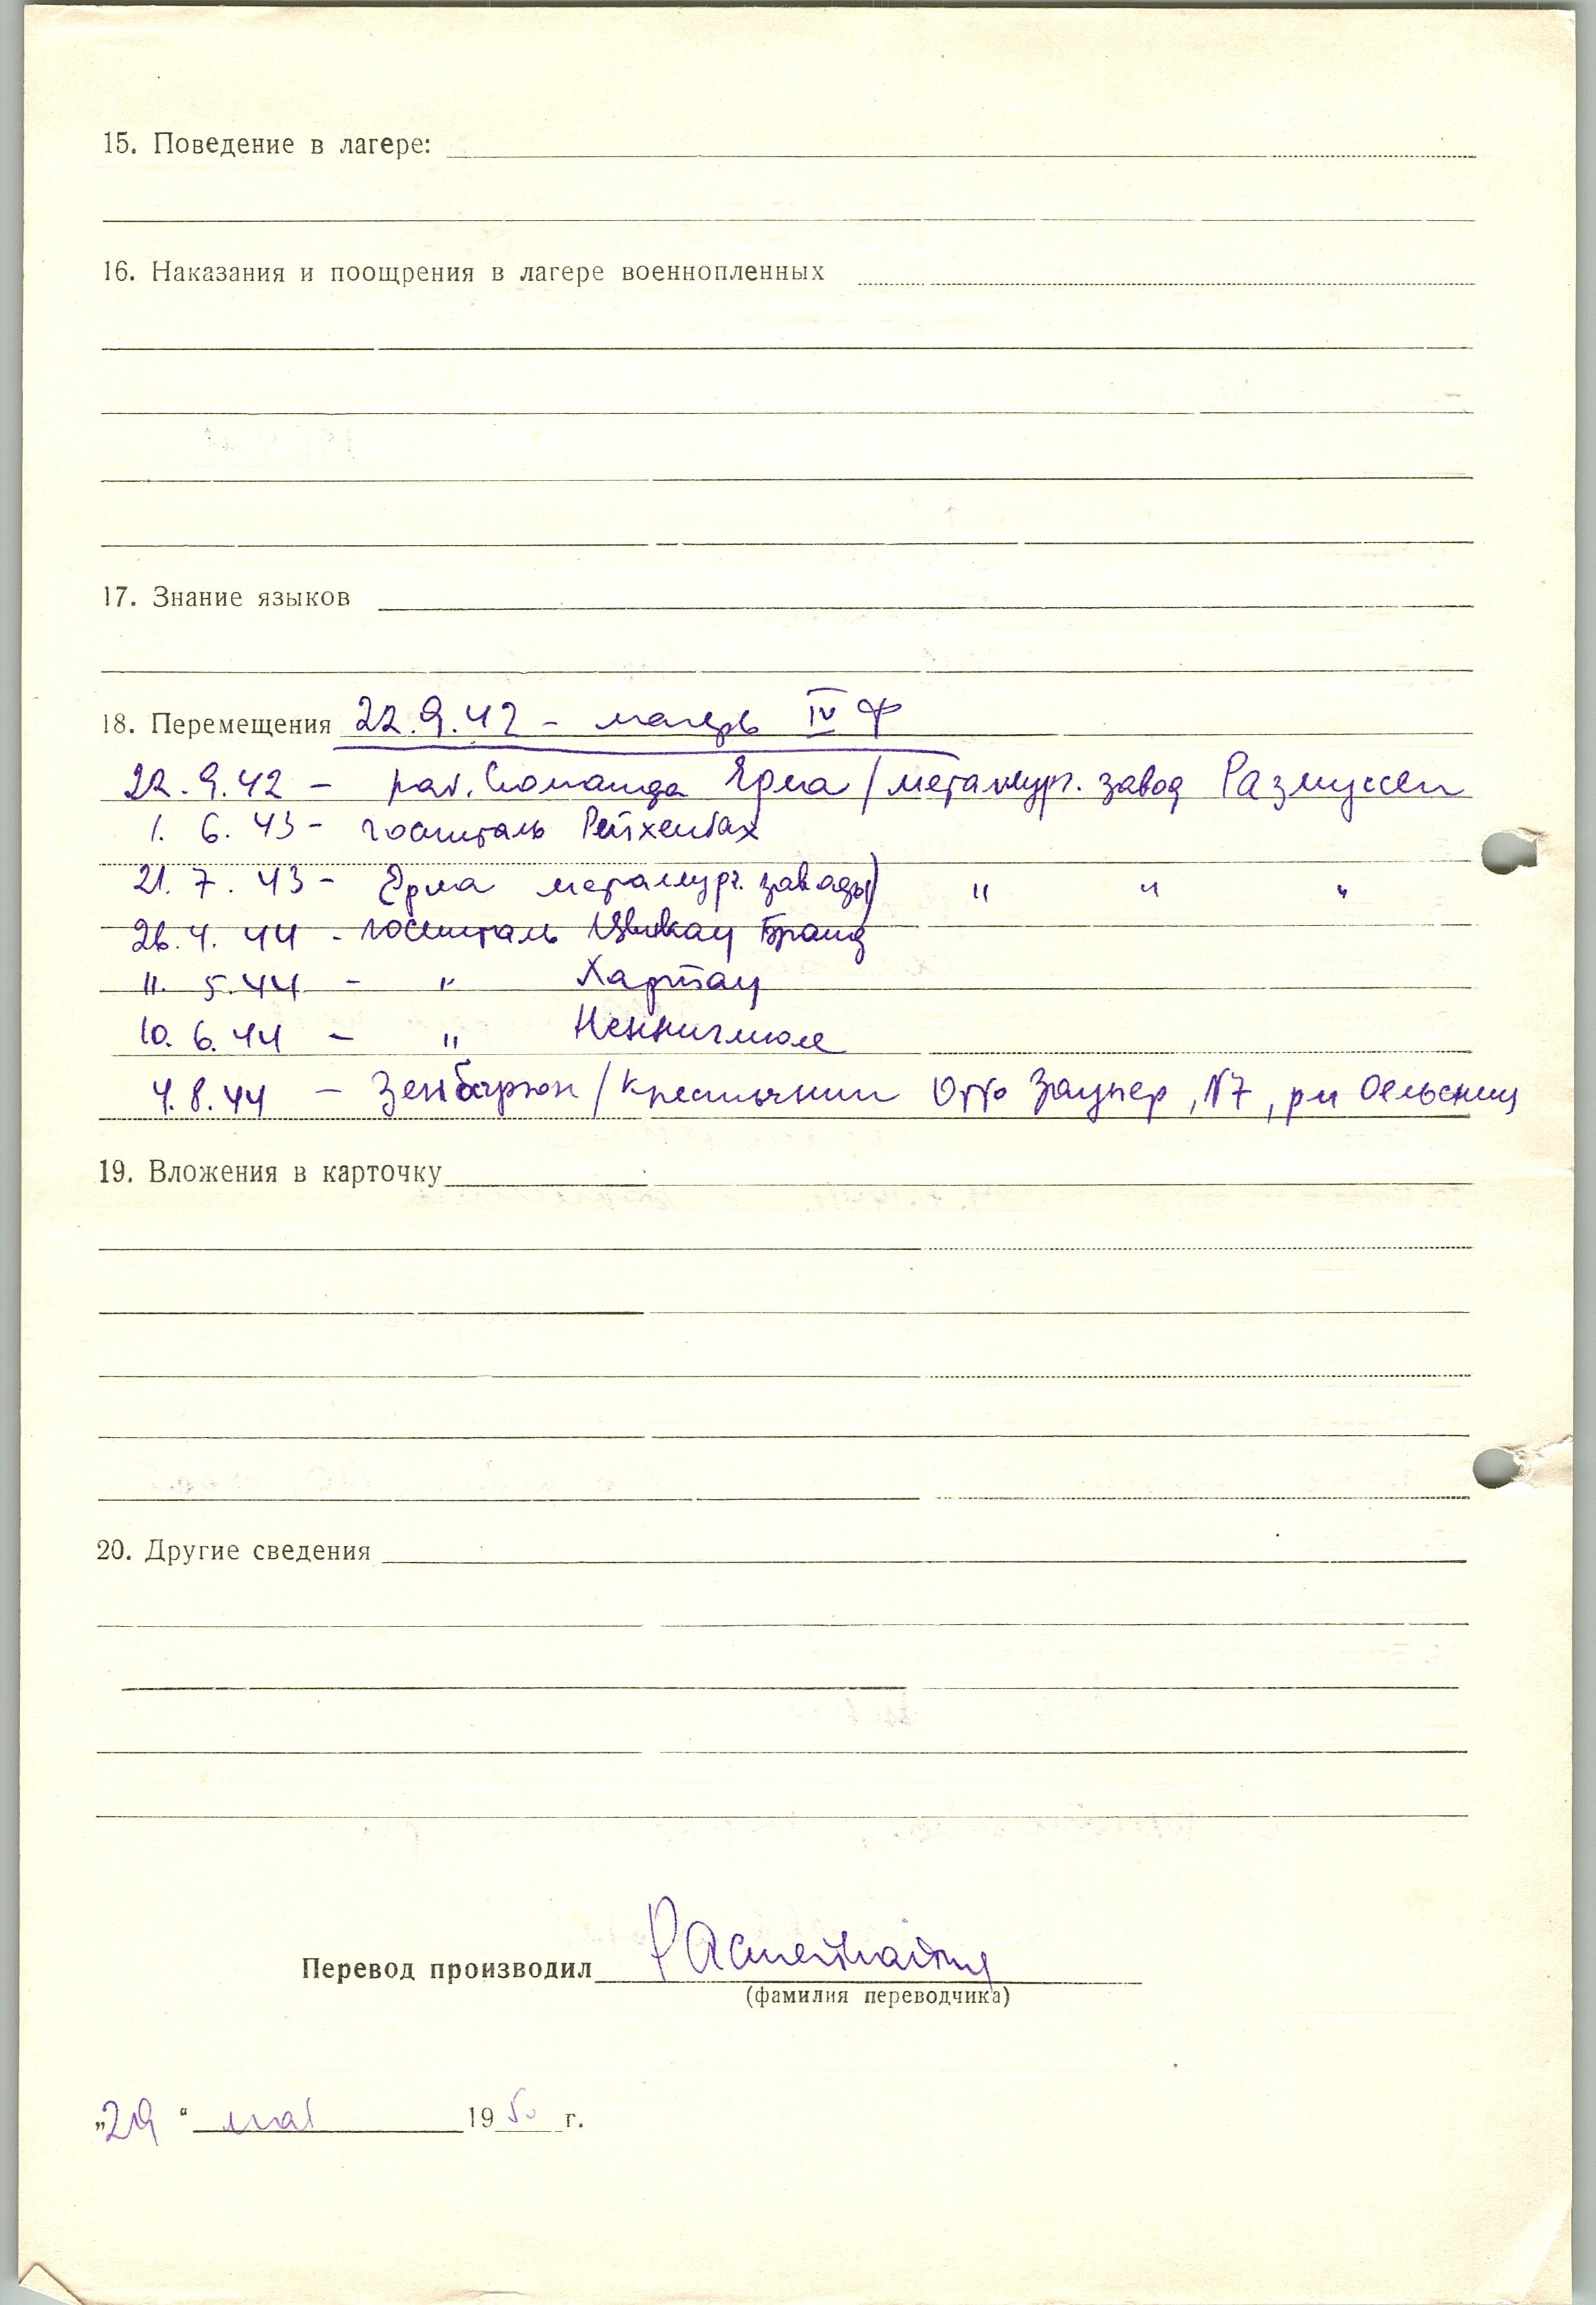 15. Поведение в лагере:
16. Наказания и поощрения в лагере военнопленных
17. Знание языков
18. Перемещения 22.9.42 - лагерь IV Ф
22.9.42 - раб. команда Ерла / металлург. завод Размуссен
1. 6. 43 - госпиталь Рейхенбах
21. 7. 43 - Ерла металлург. заводы) " " "
26.4. 44 - госпиталь Цвикау Бранд
11. 5.44 - " Хартау
10. 6.44 - "
4.8.44 - / крестьянин Отто Заупер, N7, рн Оельсниц
19. Вложения в карточку
20. Другие сведения
Перевод производил
(фамилия переводчика)
„29 “ мая 1950 г.